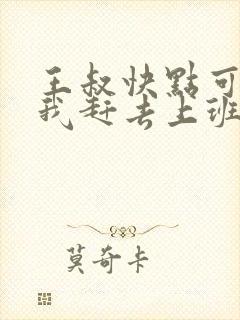 王叔快點可
我赶去上班
莫奇卡